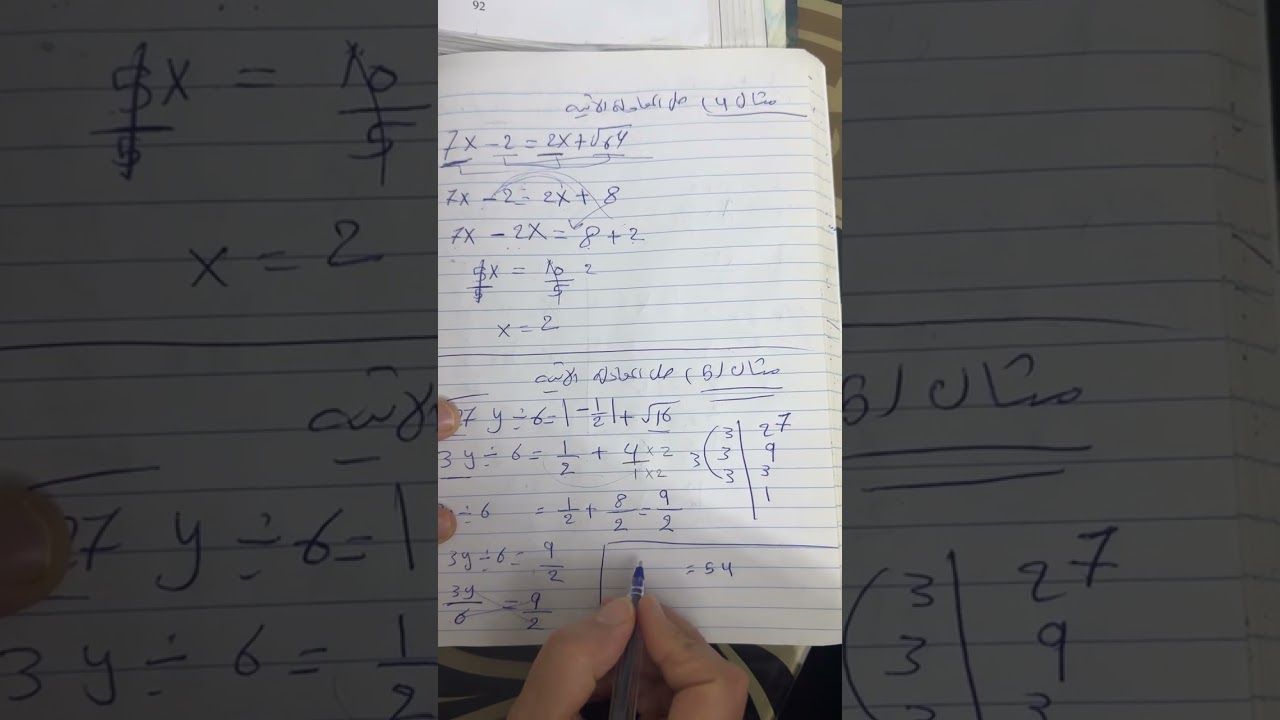 92
مثال (4) حل المعادلة الآتية
7x - 2 = 2x + √64
7x - 2 = 2x + 8
7x - 2x = 8 + 2
5x/5 = 10/5 2
x = 2
مثال (5) حل المعادلة الآتية
27 y ÷ 6 = |-1/2| + √16
3y ÷ 6 = 1/2 + 4×2/1×2
÷ 6 = 1/2 + 8/2 = 9/2
3y ÷ 6 = 9/2
3y/6 = 9/2
3 | 27
3 | 9
3 | 3
1
3
= 54